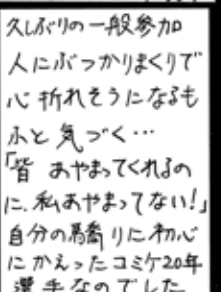 久しぶりの一般参加
人にぶつかりまくりで
心折れそうになるも
ふと気づく…
「皆 あやまってくれるの
に、私あやまってない!」
自分の驕りに初心
にかえったコミケ20年
選手なのでした